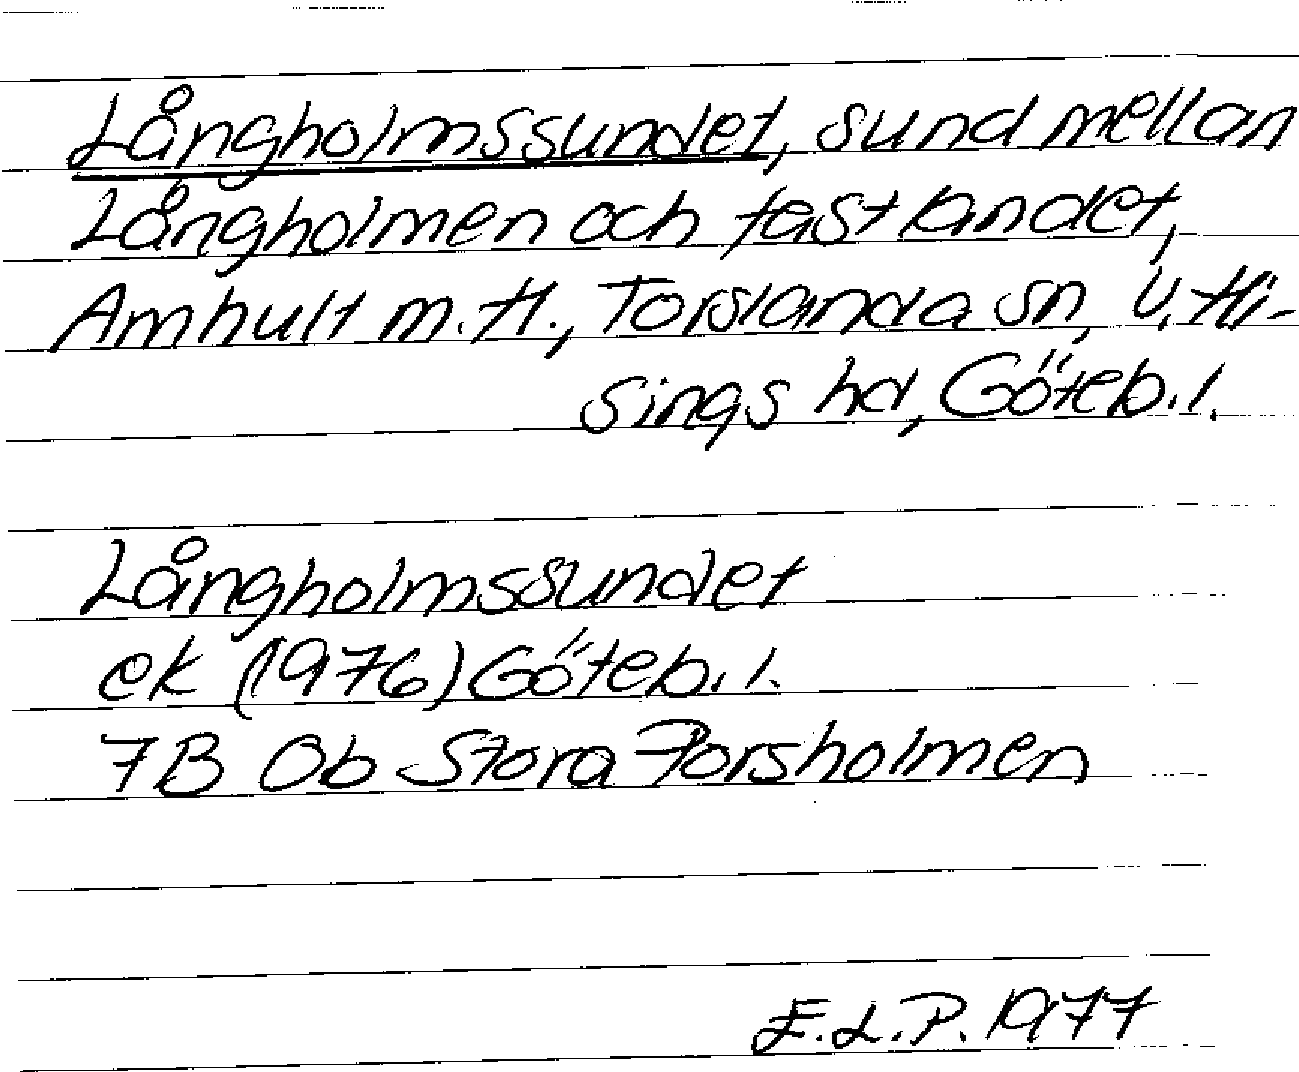 Långholmssundet, sund mellan
Långholmen och fastlandet,
Amhult m.fl., Torslanda sn, V. Hi-
sings hd, Göteb. l.
Långholmssundet
ek (1976) Göteb. l.
7B 0b Stora Porsholmen
E.L.P. 1977